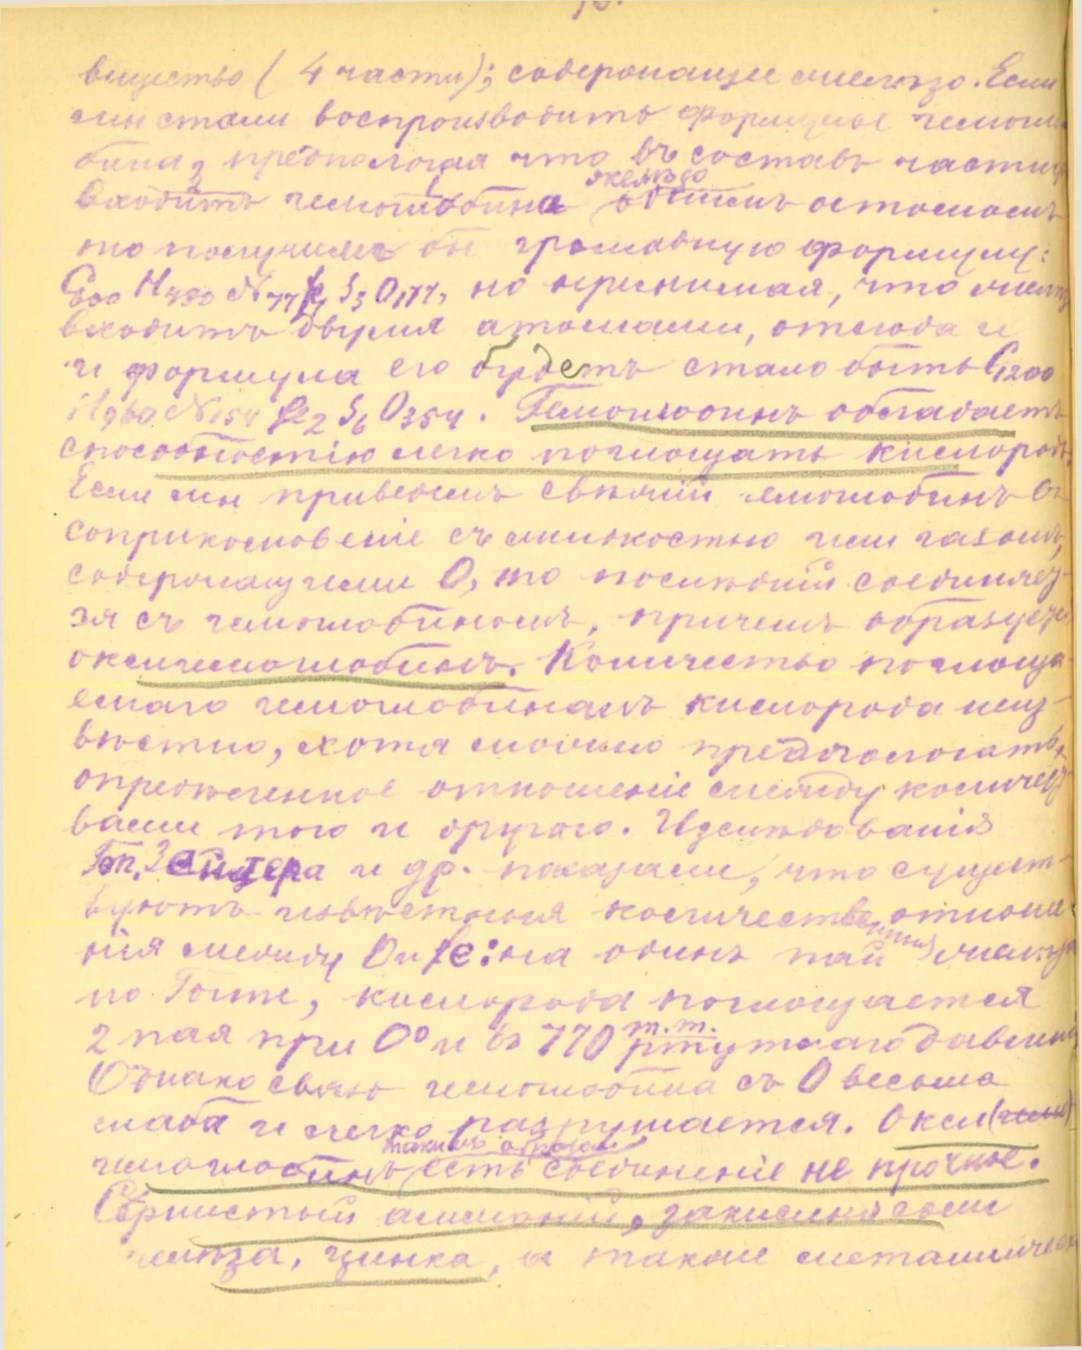 вещество (4 части); содержащее железо. Если
мы стали воспроизводить формулы гемогло-
бина, предполагая что въ составъ частицы
входитъ гемоглобина железо однимъ атомомъ
то получили бы громадную формулу:
C600 H480 N77 Fe S3 O177, но принимая, что железо
входитъ двумя атомами, отсюда и
и формула его будетъ стало быть C1200
H960 N154 Fe2 S6 O354. Гемоглобинъ обладаетъ
способностію легко поглощать кислородъ
Если мы приведемъ свежій гемоглобинъ въ
соприкосновеніе съ жидкостью или газомъ,
содержащими O, то последній соединяет-
ся съ гемоглобиномъ, причемъ образуется
оксигемоглобинъ. Количество поглоща-
емаго гемоглобиномъ кислорода неиз-
вестно, хотя можно предпологать
определенное отношеніе между количест-
вами того и другого. Изследованія
и др. показали, что сущест-
вуютъ известныя количественныя отноше-
нія между O и Fe: на одинъ пай железа
по Гоппе, кислорода поглощается
2 пая при 0° и въ 770 m.m. ртутнаго давленія
Однако связь гемоглобина съ O весьма
слаба и легко разрушается. Окси(гемо)
гемоглобинъ такимъ образомъ есть соединеніе не прочное.
Сернистый аммоній, закисныя соли
железа, цинка, а также металлическ